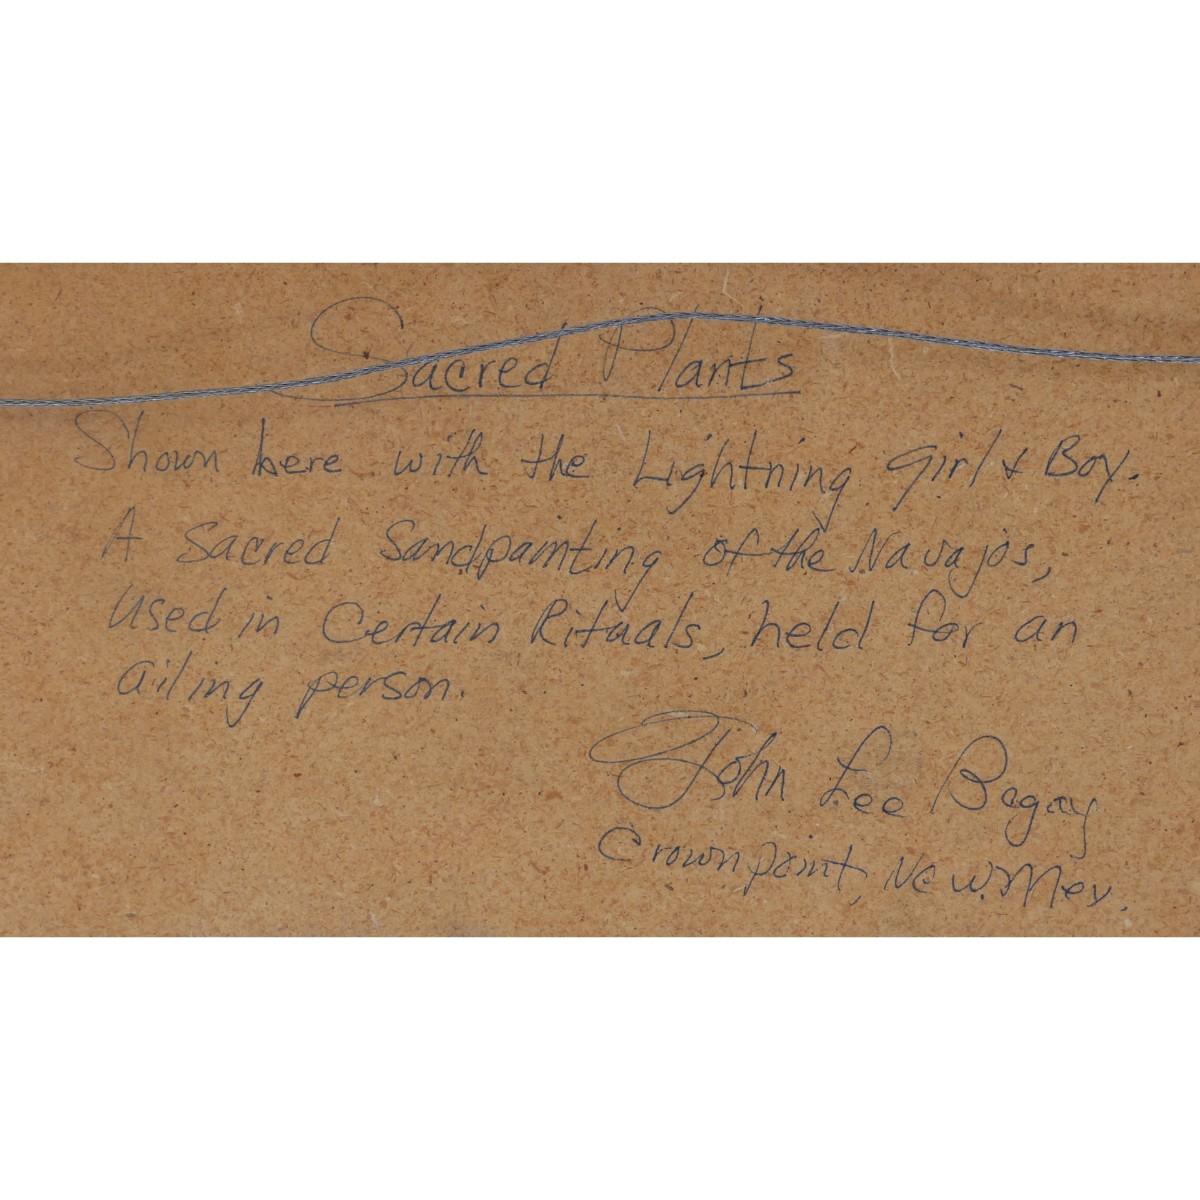 Sacred Plants
Shown here with the Lightning Girl & Boy.
A Sacred Sandpainting of the Navajos,
Used in Certain Rituals, held for an
ailing person.
John Lee Begay
Crownpoint, New Mex.